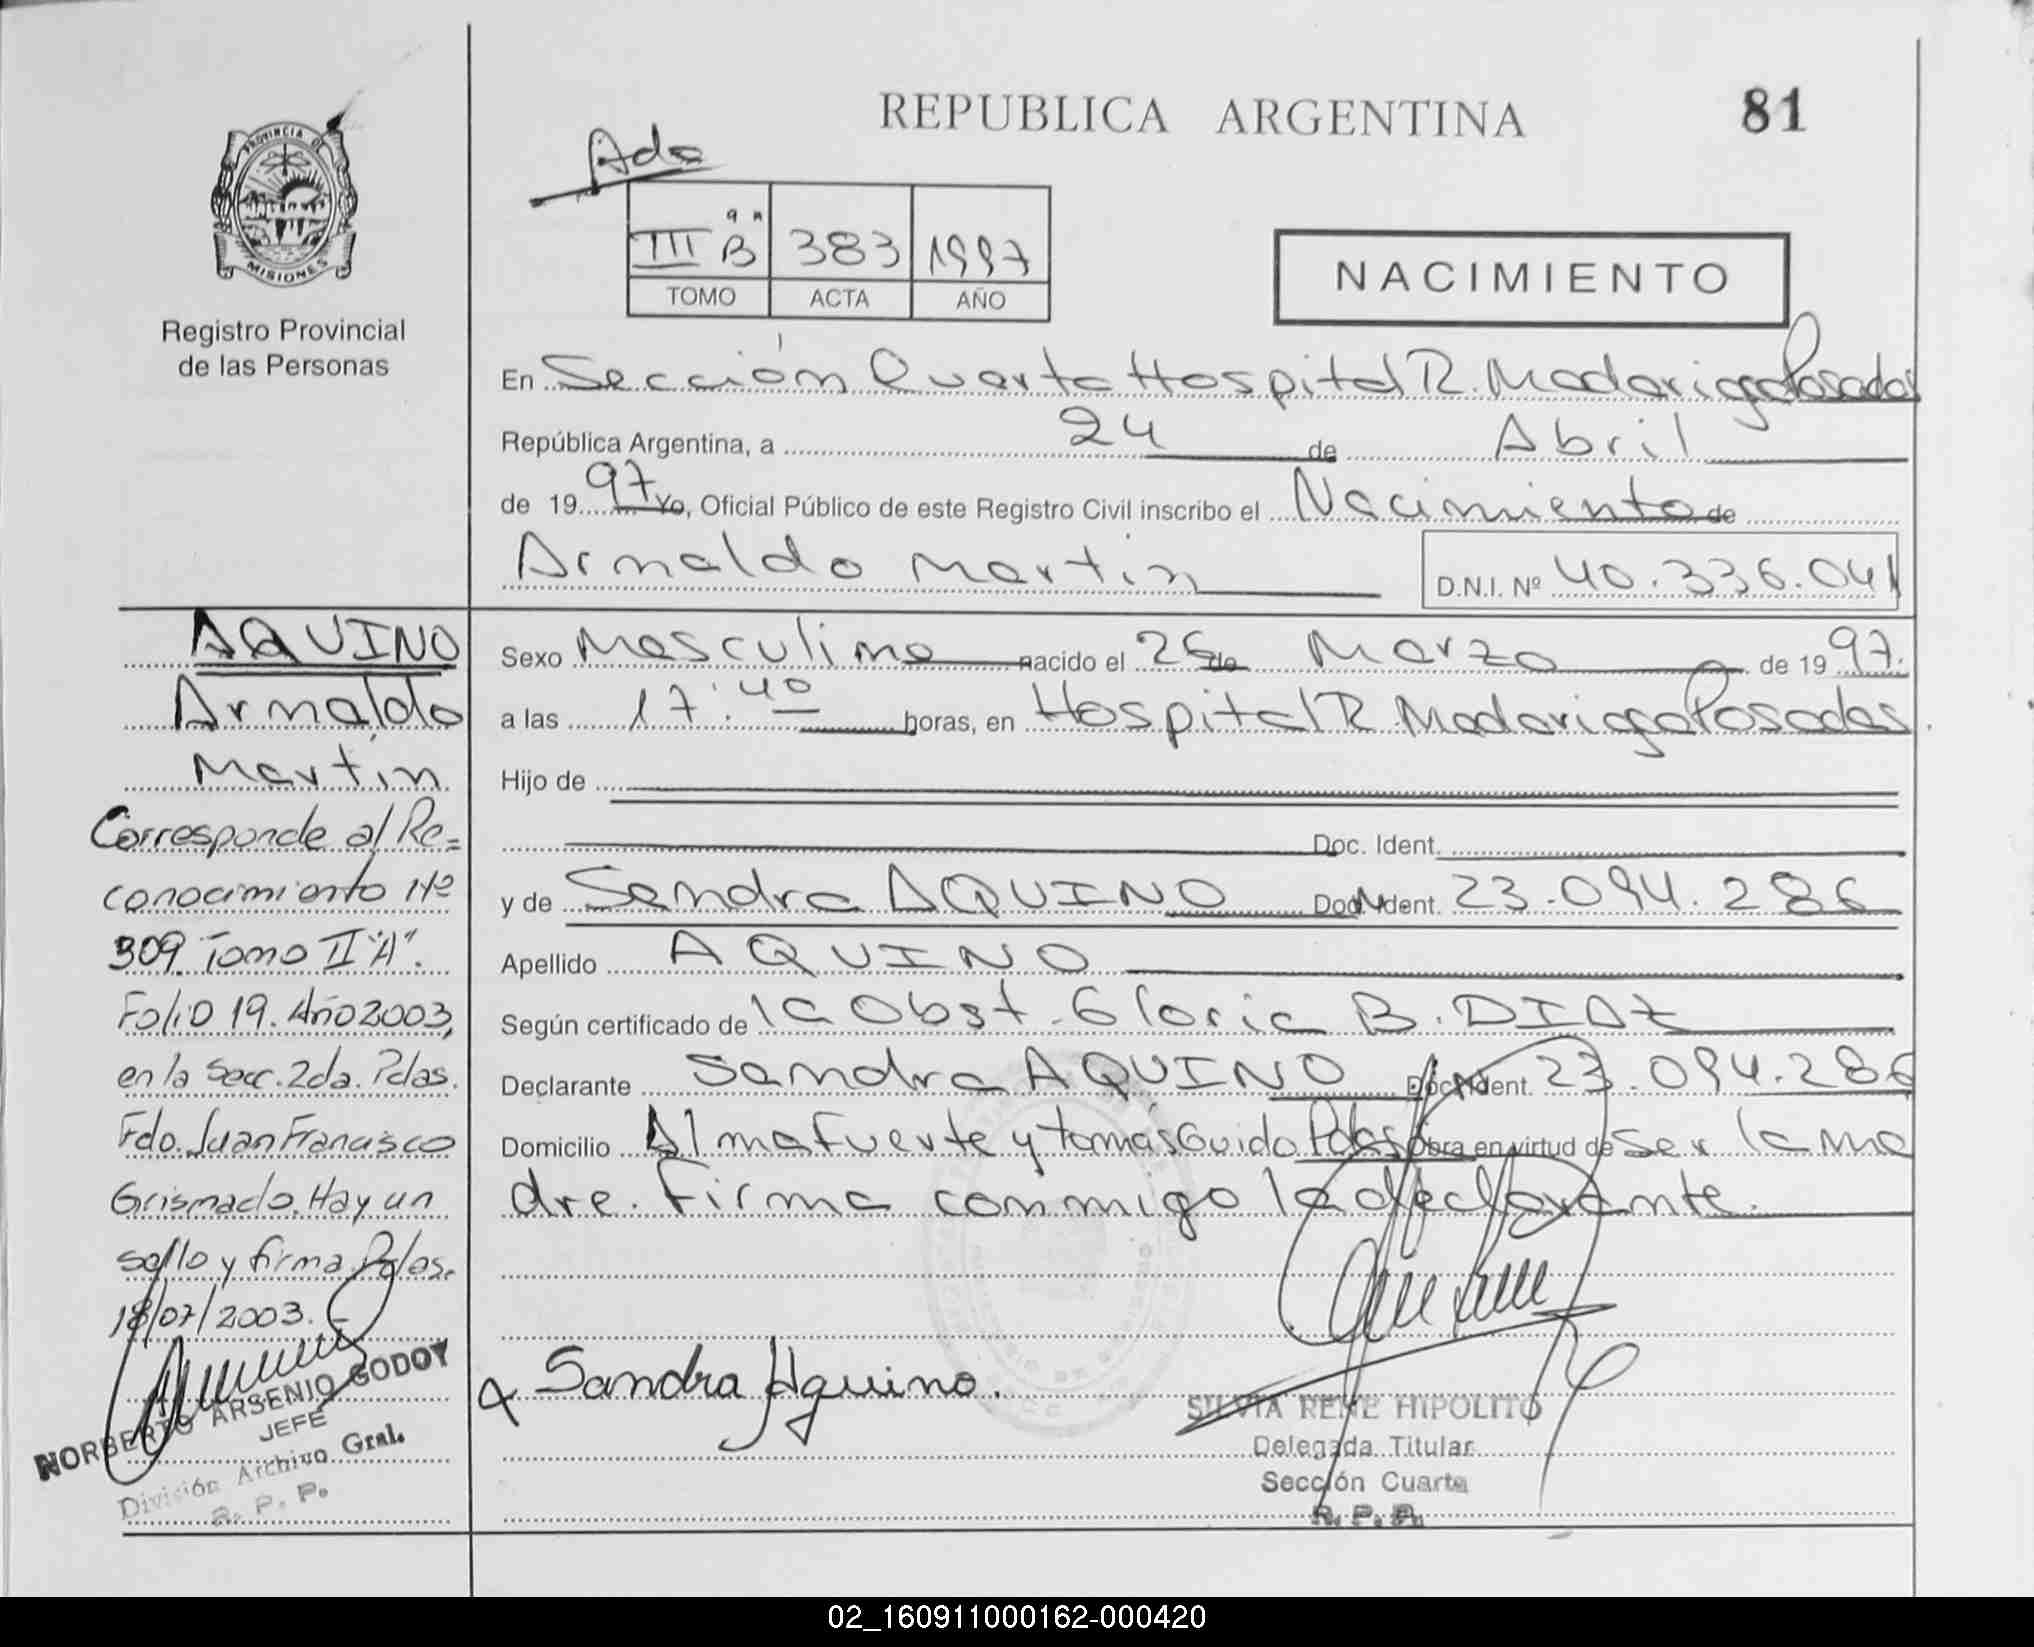 REPUBLICA ARGENTINA
81
Ado
III "B" 383 1997
TOMO ACTA AÑO
NACIMIENTO
PROVINCIA DE
MISIONES
Registro Provincial
de las Personas
En Sección Cuarta Hospital R. Madariaga Posadas
República Argentina, a 24 de Abril
de 19 97 Yo, Oficial Público de este Registro Civil inscribo el Nacimiento de
Arnaldo Martin D.N.I. Nº 40.336.041
AQUINO
Arnaldo
Martin
Corresponde al Re=
conocimiento Nº
309. Tomo II "A".
Folio 19. Año 2003,
en la Secc. 2da. Pdas.
Fdo. Juan Francisco
Grismado. Hay un
sello y firma. Pdas.
18/07/2003.-
NORBERTO ARSENIO GODOY
JEFE
División Archivo Gral.
R. P. P.
Sexo Masculino nacido el 26 de Marzo de 19 97.
a las 17:40 horas, en Hospital R. Madariaga Posadas.
Hijo de
Doc. Ident.
y de Sandra AQUINO Doc. Ident. 23.094.286
Apellido AQUINO
Según certificado de la Obst. Gloria B. DIAZ
Declarante Sandra AQUINO Doc. Ident. 23.094.286
Domicilio Almafuerte y Tomás Guido Pdas Obra en virtud de ser la ma
dre. Firma conmigo la declarante.
Sandra Aquino.
SILVIA RENE HIPOLITO
Delegada Titular
Sección Cuarta
R. P. P.
02_160911000162-000420